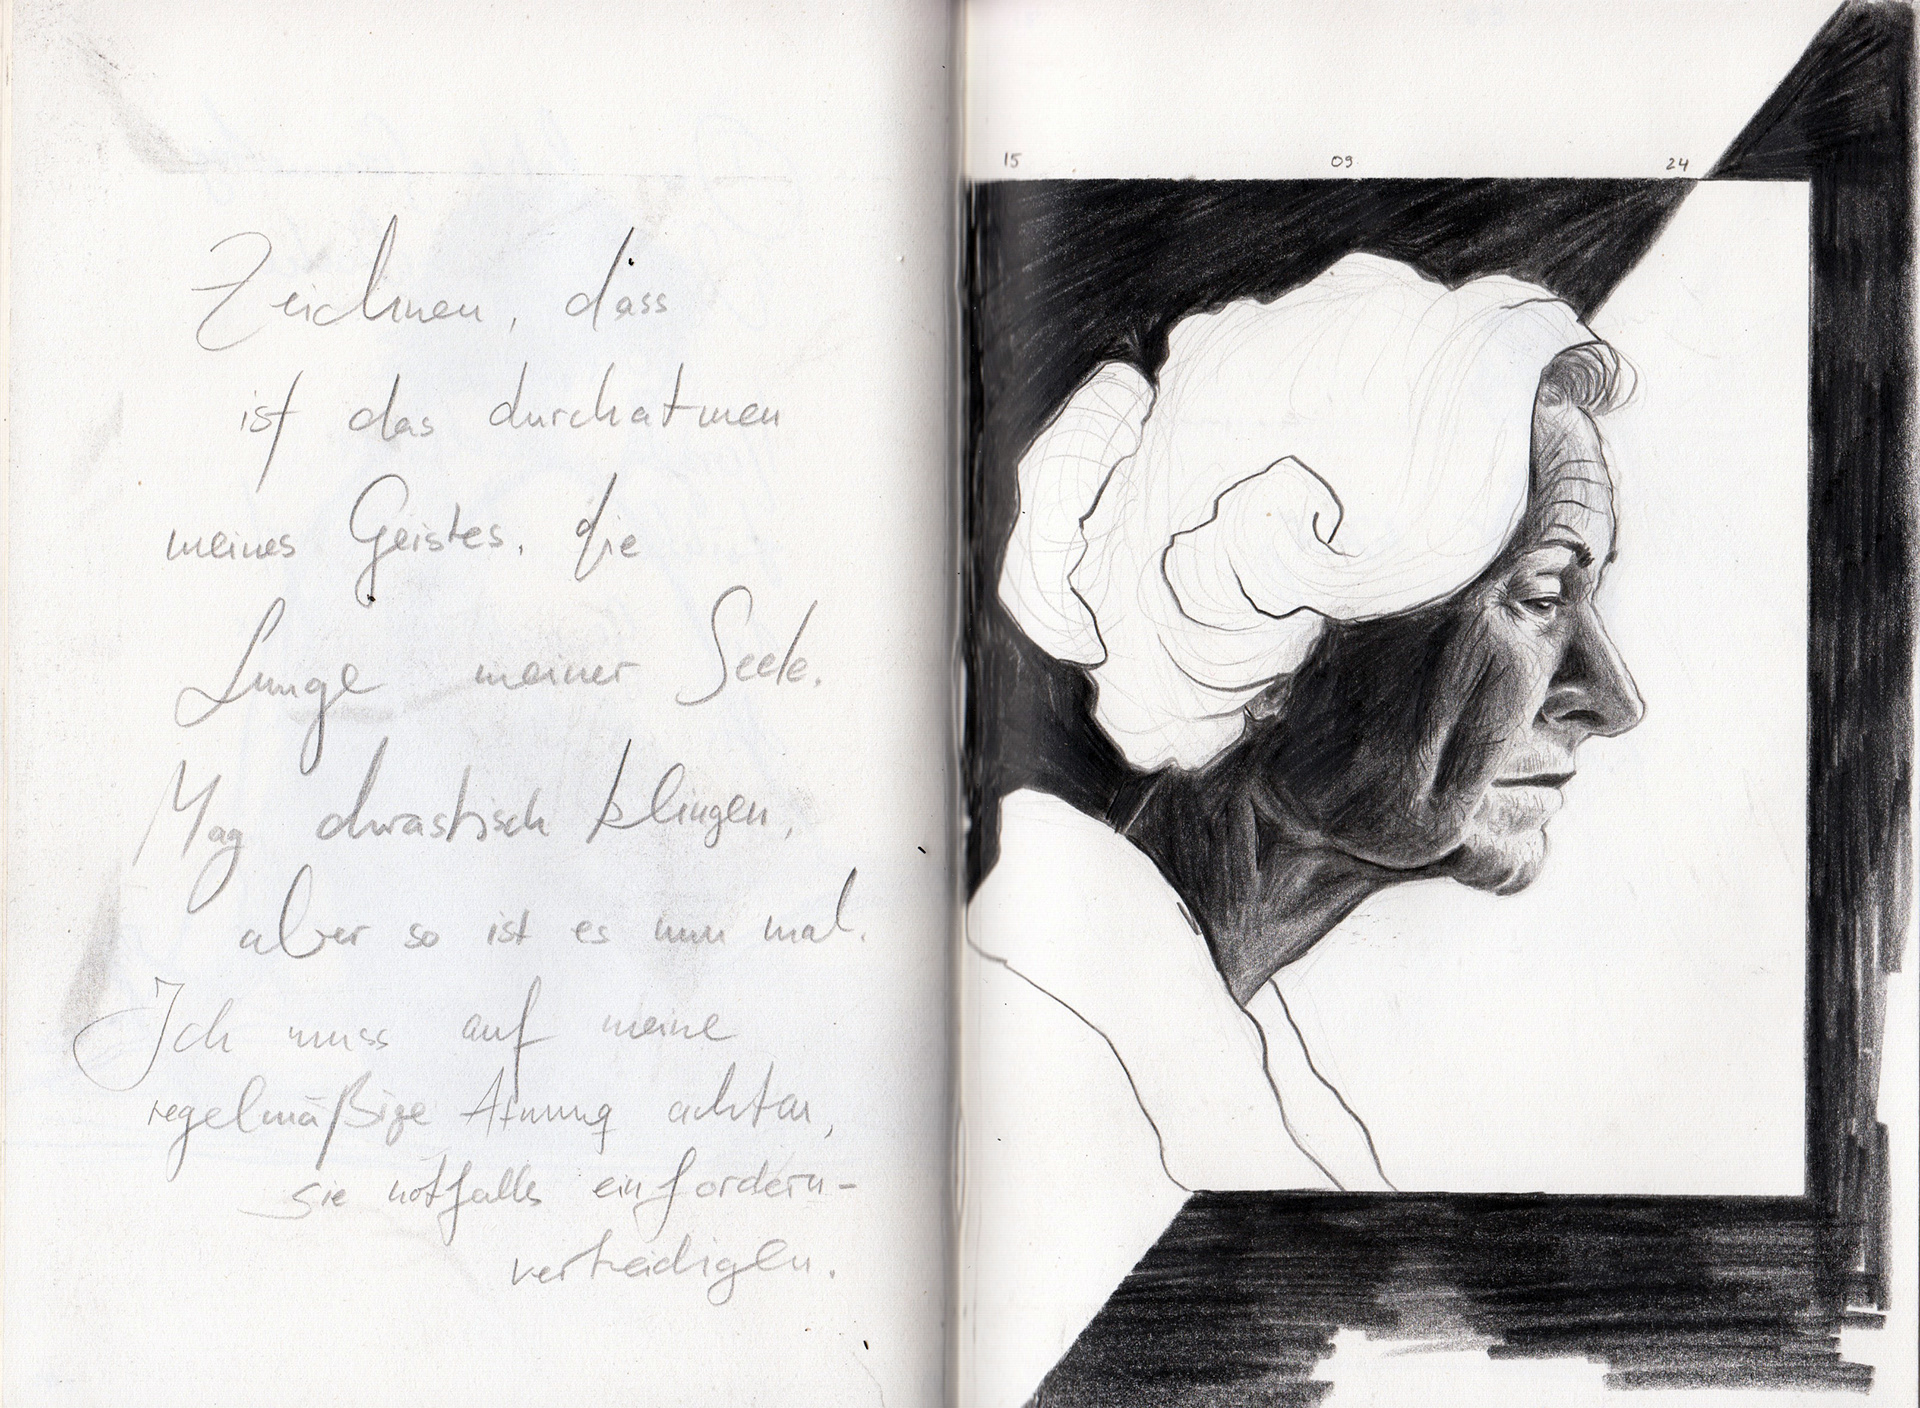 Zeichnen, dass
ist das durchatmen
meines Geistes, die
Lunge meiner Seele.
Mag drastisch klingen,
aber so ist es nun mal.
Ich muss auf meine
regelmäßige Atmung achten,
sie notfalls einfordern-
verteidigen.
15 09 24